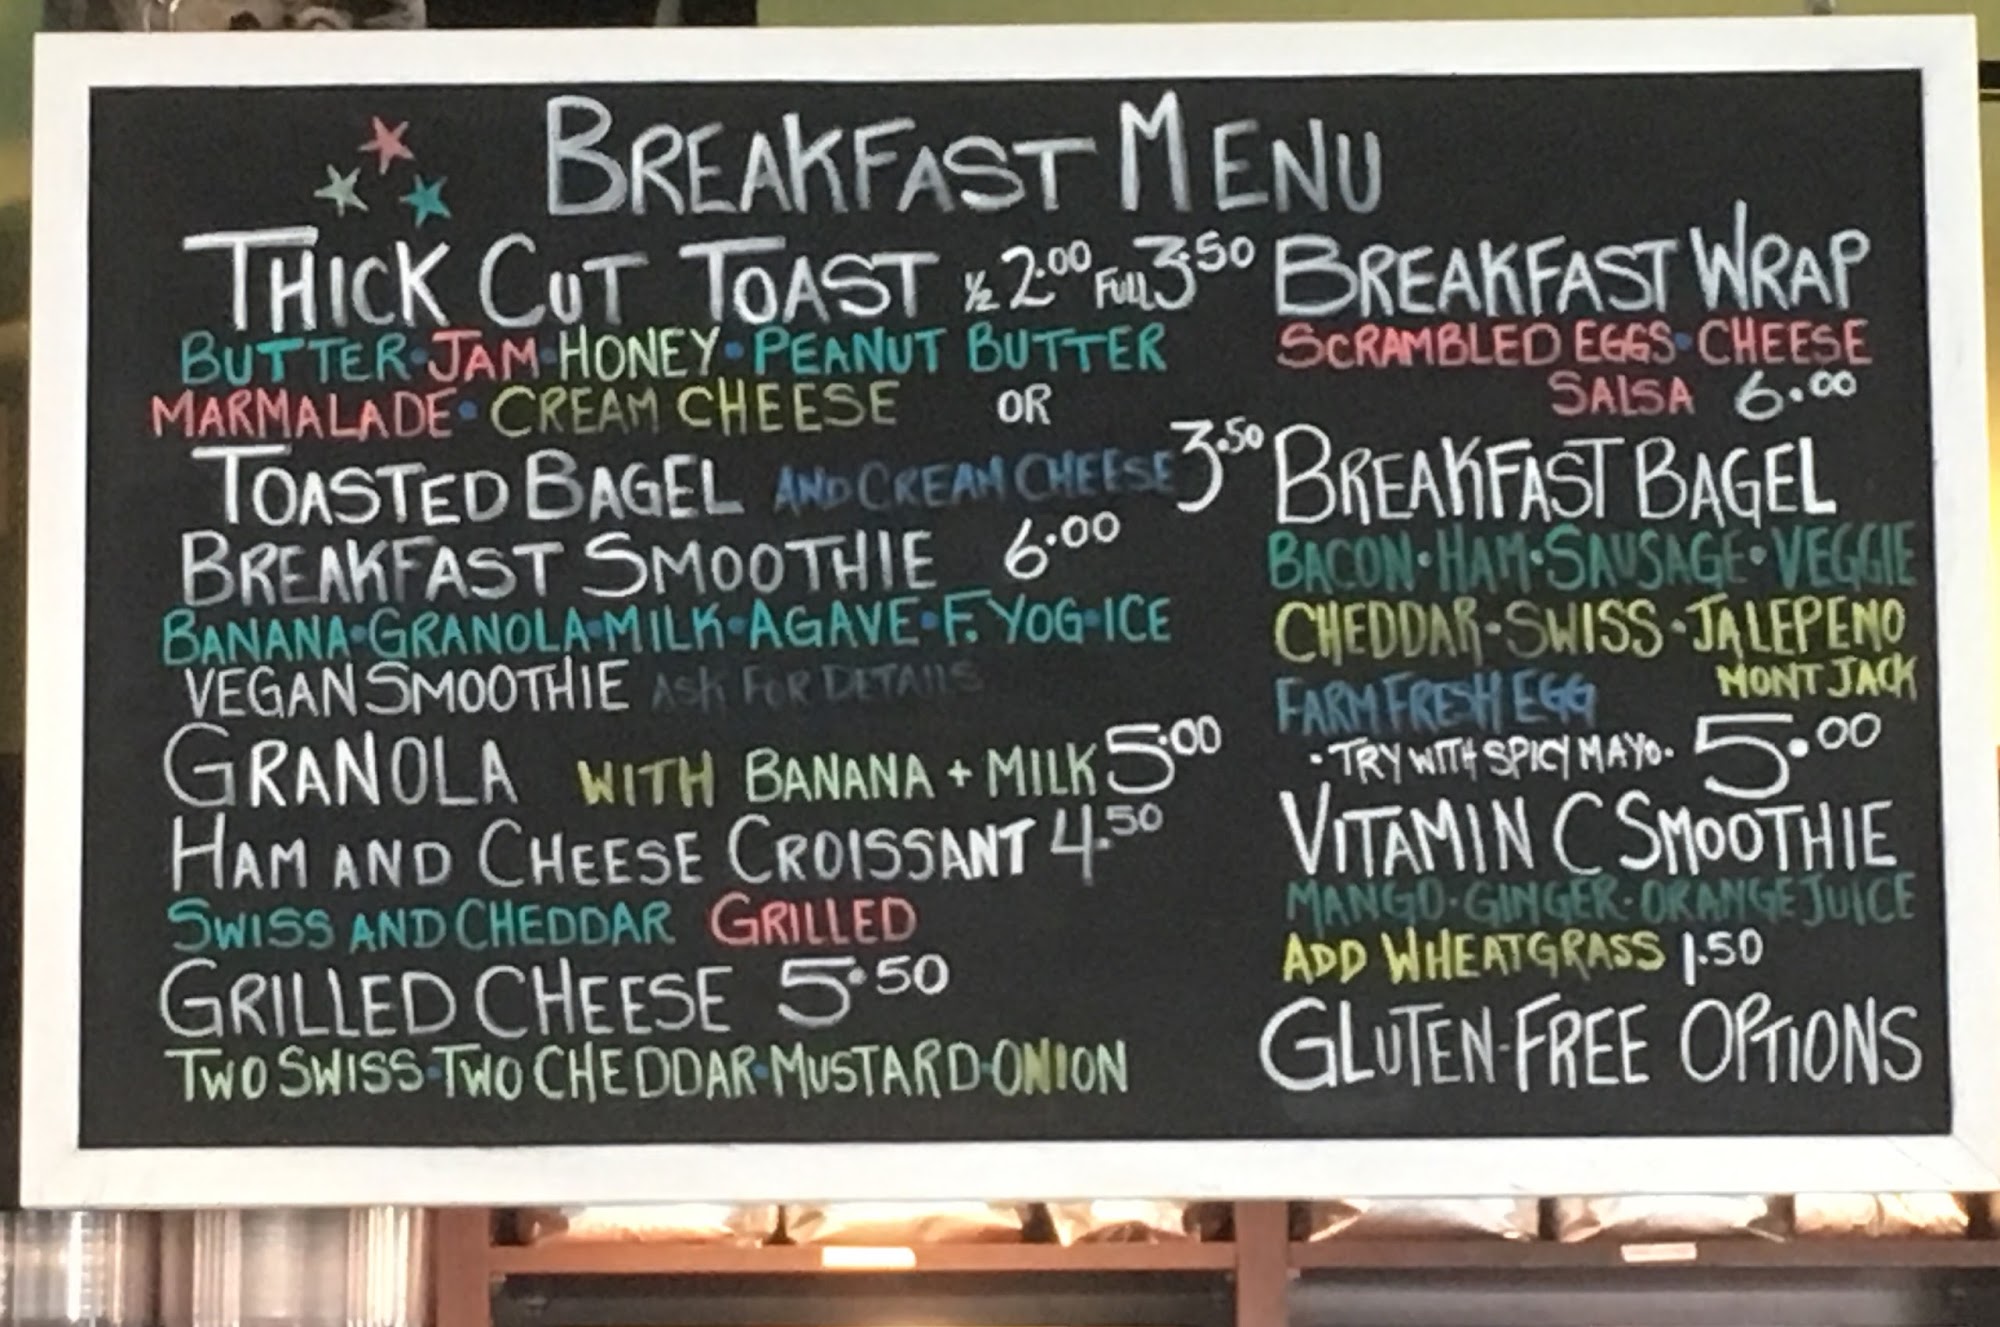 BREAKFAST MENU
THICK CUT TOAST ½ 2.00 FULL 3.50
BUTTER • JAM • HONEY • PEANUT BUTTER
MARMALADE • CREAM CHEESE OR
TOASTED BAGEL AND CREAM CHEESE 3.50
BREAKFAST SMOOTHIE 6.00
BANANA • GRANOLA • MILK • AGAVE • F. YOG • ICE
VEGAN SMOOTHIE ASK FOR DETAILS
GRANOLA WITH BANANA + MILK 5.00
HAM AND CHEESE CROISSANT 4.50
SWISS AND CHEDDAR GRILLED
GRILLED CHEESE 5.50
TWO SWISS • TWO CHEDDAR • MUSTARD • ONION
BREAKFAST WRAP
SCRAMBLED EGGS • CHEESE
SALSA 6.00
BREAKFAST BAGEL
BACON • HAM • SAUSAGE • VEGGIE
CHEDDAR • SWISS • JALEPENO
FARM FRESH EGG MONT JACK
• TRY WITH SPICY MAYO • 5.00
VITAMIN C SMOOTHIE
MANGO • GINGER • ORANGE JUICE
ADD WHEATGRASS 1.50
GLUTEN-FREE OPTIONS